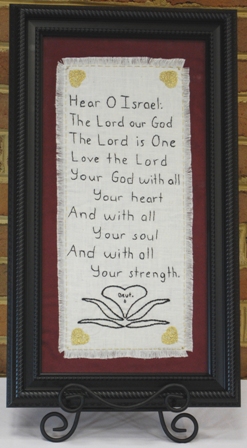 Hear O Israel:
The Lord our God
The Lord is One
Love the Lord
Your God with all
Your heart
And with all
Your soul
And with all
Your strength.
Deut.
6